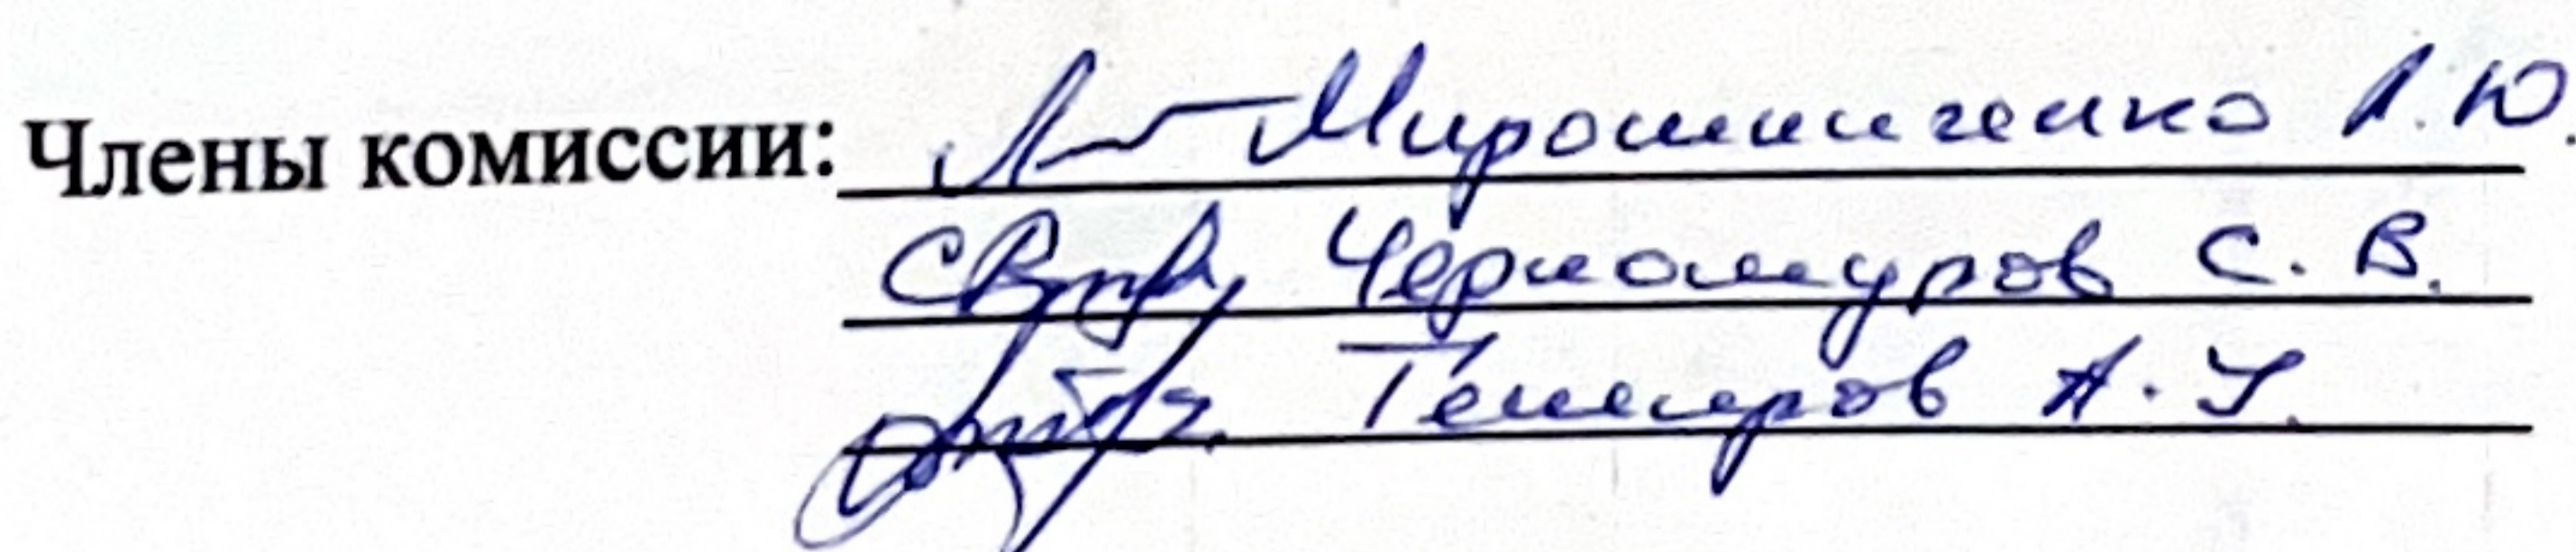 Члены комиссии: Мирошниченко Л.Ю.
Черномуров С. В.
Темиров А. У.